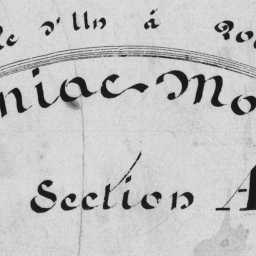 d'un à
niac-Mo
Section A